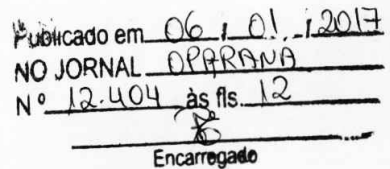 Publicado em 06 / 01 / 2017
NO JORNAL OPARANA
Nº 12.404 às fls. 12
Encarregado